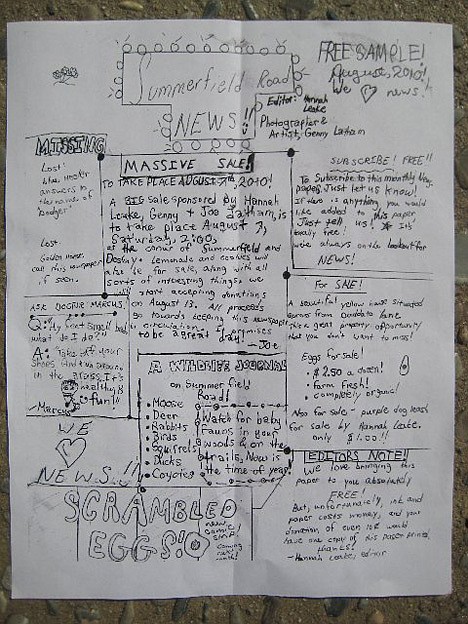 Summerfield Road
NEWS!!
FREE SAMPLE!
August, 2010!
We ♡ news!
Editor: Hannah
Leake
Photographer &
Artist, Genny Latham
MISSING
Lost:
answers to
the name of
Lost
Golden
call this newspaper
if seen.
MASSIVE SALE!
TO TAKE PLACE AUGUST 7th, 2010!
A BIG sale sponsored by Hannah
Leake, Genny + Joe Latham, is
to take place August 7,
Saturday, 2:00,
at the corner of Summerfield and
Lemonade and cookies will
also be for sale, along with all
sorts of interesting things. We
start accepting donations
on August 13. All proceeds
go towards keeping this newspaper
in circulation. It promises
to be a great day!
-Joe
SUBSCRIBE! FREE!!
To Subscribe to this monthly News
paper, Just let us know!
If there is anything you would
like added to this paper
Just tell us! It's
totally free!
We're always on the lookout for
NEWS!
For SALE!
A beautiful yellow house situated
across from Lane
is a great property opportunity
that you don't want to miss!
Eggs for sale!
• $2.50 a dozen!
• Farm fresh!
• completely organic!
Also for sale - purple dog leash
for sale by Hannah Leake,
only $1.00!!
ASK DOCTOR MARCUS!
Q: My feet smell bad,
what do I do??
A: Take off your
shoes and run around
in the grass. It's
healthy &
fun!!
-Marcus
WE
♡
NEWS!!
A WILDLIFE JOURNAL
on Summerfield
Road!
• Moose
• Deer
• Rabbits
• Birds
• Squirrels
• Ducks
• Coyotes
Watch for baby
fawns in your
woods & on the
trails. Now is
the time of year.
EDITORS NOTE!!
We love bringing this
paper to you absolutely
FREE!
But, unfortunately, ink and
paper costs money, and your
donation, of even 10¢ would
have one copy of this paper printed,
thanks!
-Hannah Leake, editor
SCRAMBLED
EGGS!
new
comic
strip!
coming
next
month!